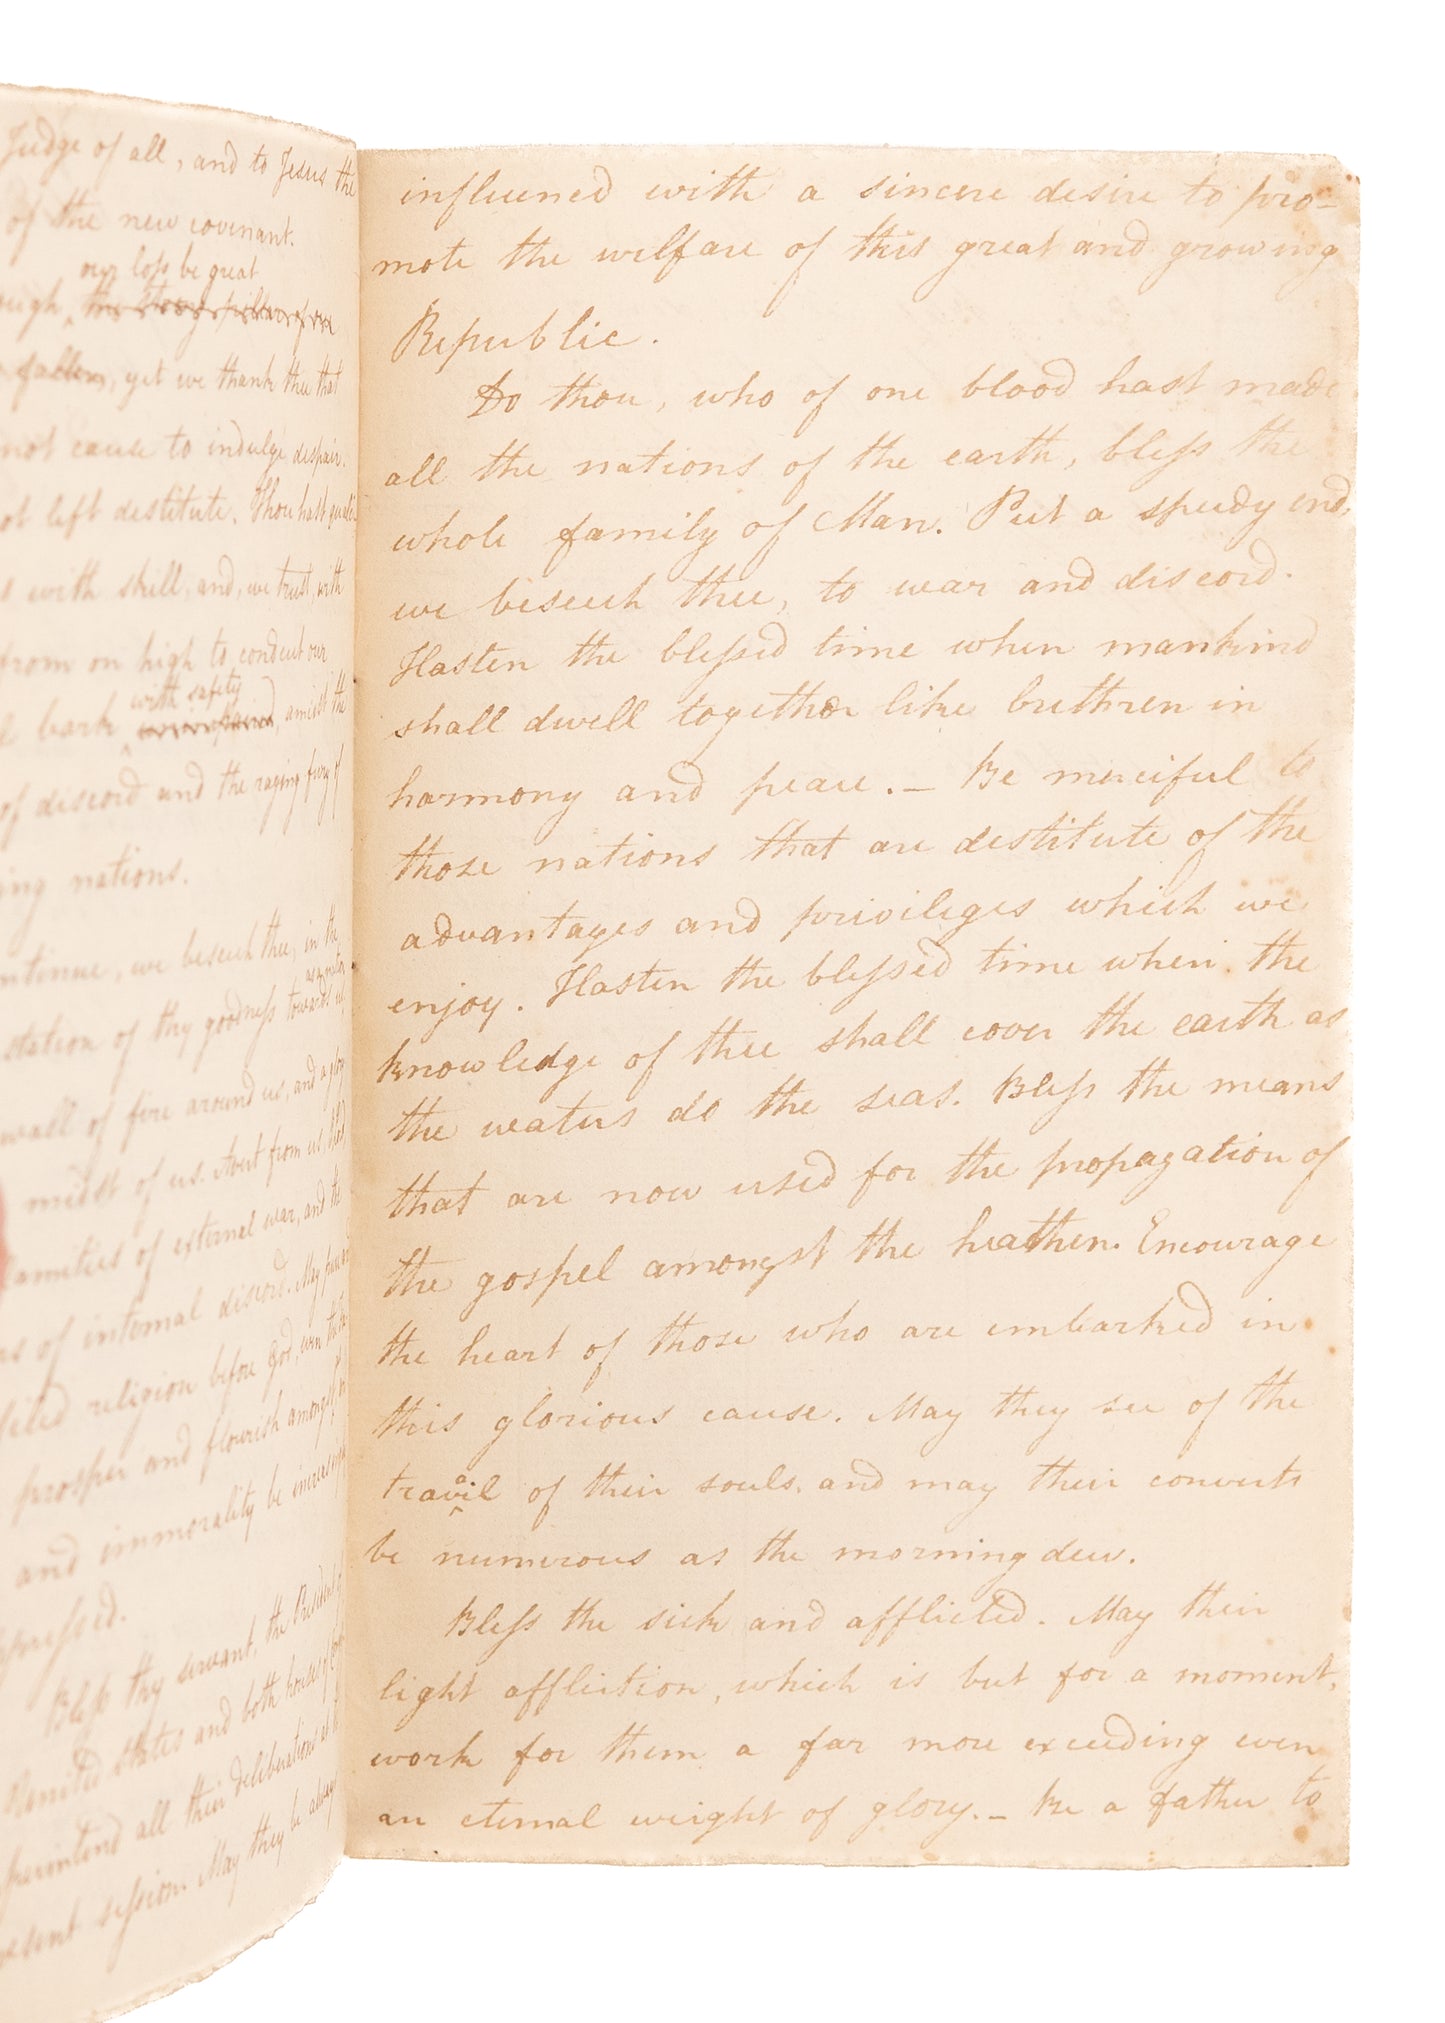 Judge of all, and to Jesus the
of the new covenant.
our loſs be great
fallen, yet we thank thee that
not cause to indulge despair.
left destitute. Thou hast
with skill, and, we trust, with
from on high to conduct our
with safety
bark amidst the
of discord and the raging fury of
nations.
we beseech thee, in the
of thy goodneſs towards us,
wall of fire around us, and a glory
midst of us. Avert from us, the
of external war, and the
of internal discord. May pure and
religion before God, even the
prosper and flourish amongst
and immorality be
Bleſs thy servant, the President of
United States and both houses of
all their deliberations at
seſsion. May they be always
influened with a sincere desire to pro-
mote the welfare of this great and growing
Republic.
Do thou, who of one blood hast made
all the nations of the earth, bleſs the
whole family of Man. Put a speedy end,
we beseech thee, to war and discord.
Hasten the bleſsed time when mankind
shall dwell together like brethren in
harmony and peace. – Be merciful to
those nations that are destitute of the
advantages and privileges which we
enjoy. Hasten the bleſsed time when the
knowledge of thee shall cover the earth as
the waters do the seas. Bleſs the means
that are now used for the propagation of
the gospel amongst the heathen. Encourage
the heart of those who are embarked in
this glorious cause. May they see of the
travail of their souls, and may their converts
be numerous as the morning dew.
Bleſs the sick and afflicted. May their
light affliction, which is but for a moment,
work for them a far more exceeding even
an eternal weight of glory. – Be a father to